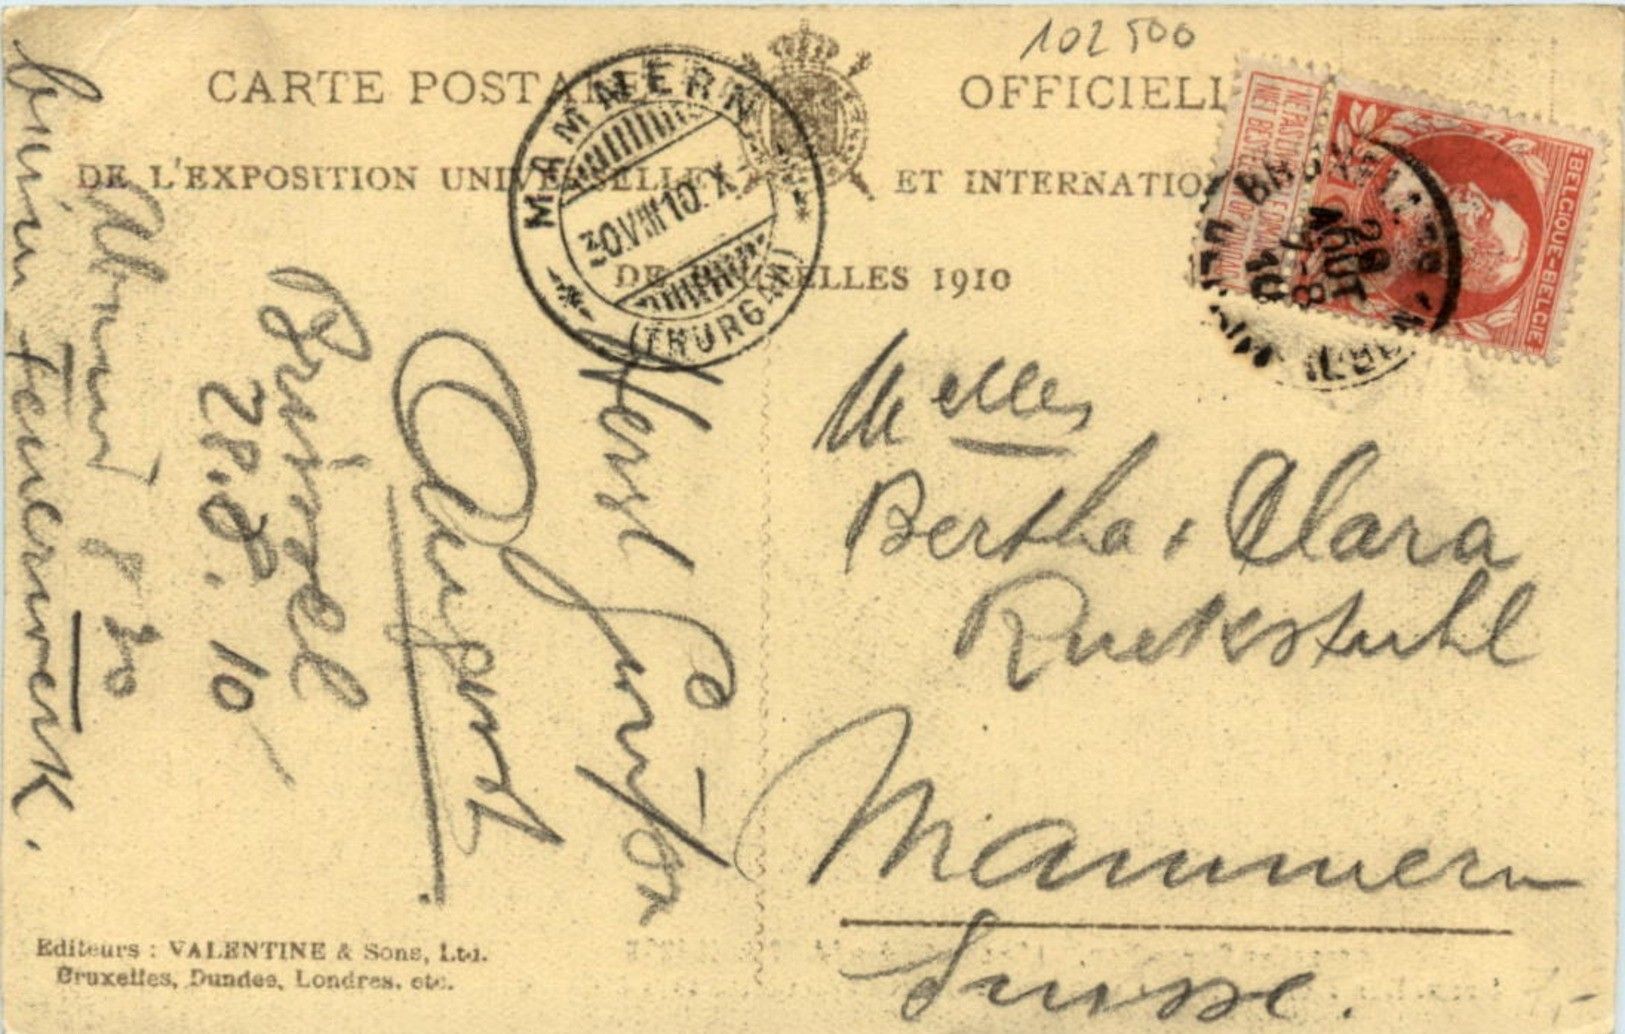 102 500
CARTE POSTALE OFFICIELLE
DE L'EXPOSITION UNIVERSELLE ET INTERNATIONALE
DE BRUXELLES 1910
MAMMERN
30.VIII.10.X-
(THURGAU)
BELGIQUE-BELGIË
NE PAS LIVRER LE DIMANCHE
NIET BESTELLEN OP ZONDAG
BRUXELLES
28
AOUT
7-8
10
BRUSSEL
Melles
Bertha & Clara
Ruckstuhl
Mammern
Suisse.
Herzl
August
Brüssel
28.8.10
Abend 8 30
beim Feuerwerk.
Editeurs : VALENTINE & Sons, Ltd.
Bruxelles, Dundee, Londres, etc.